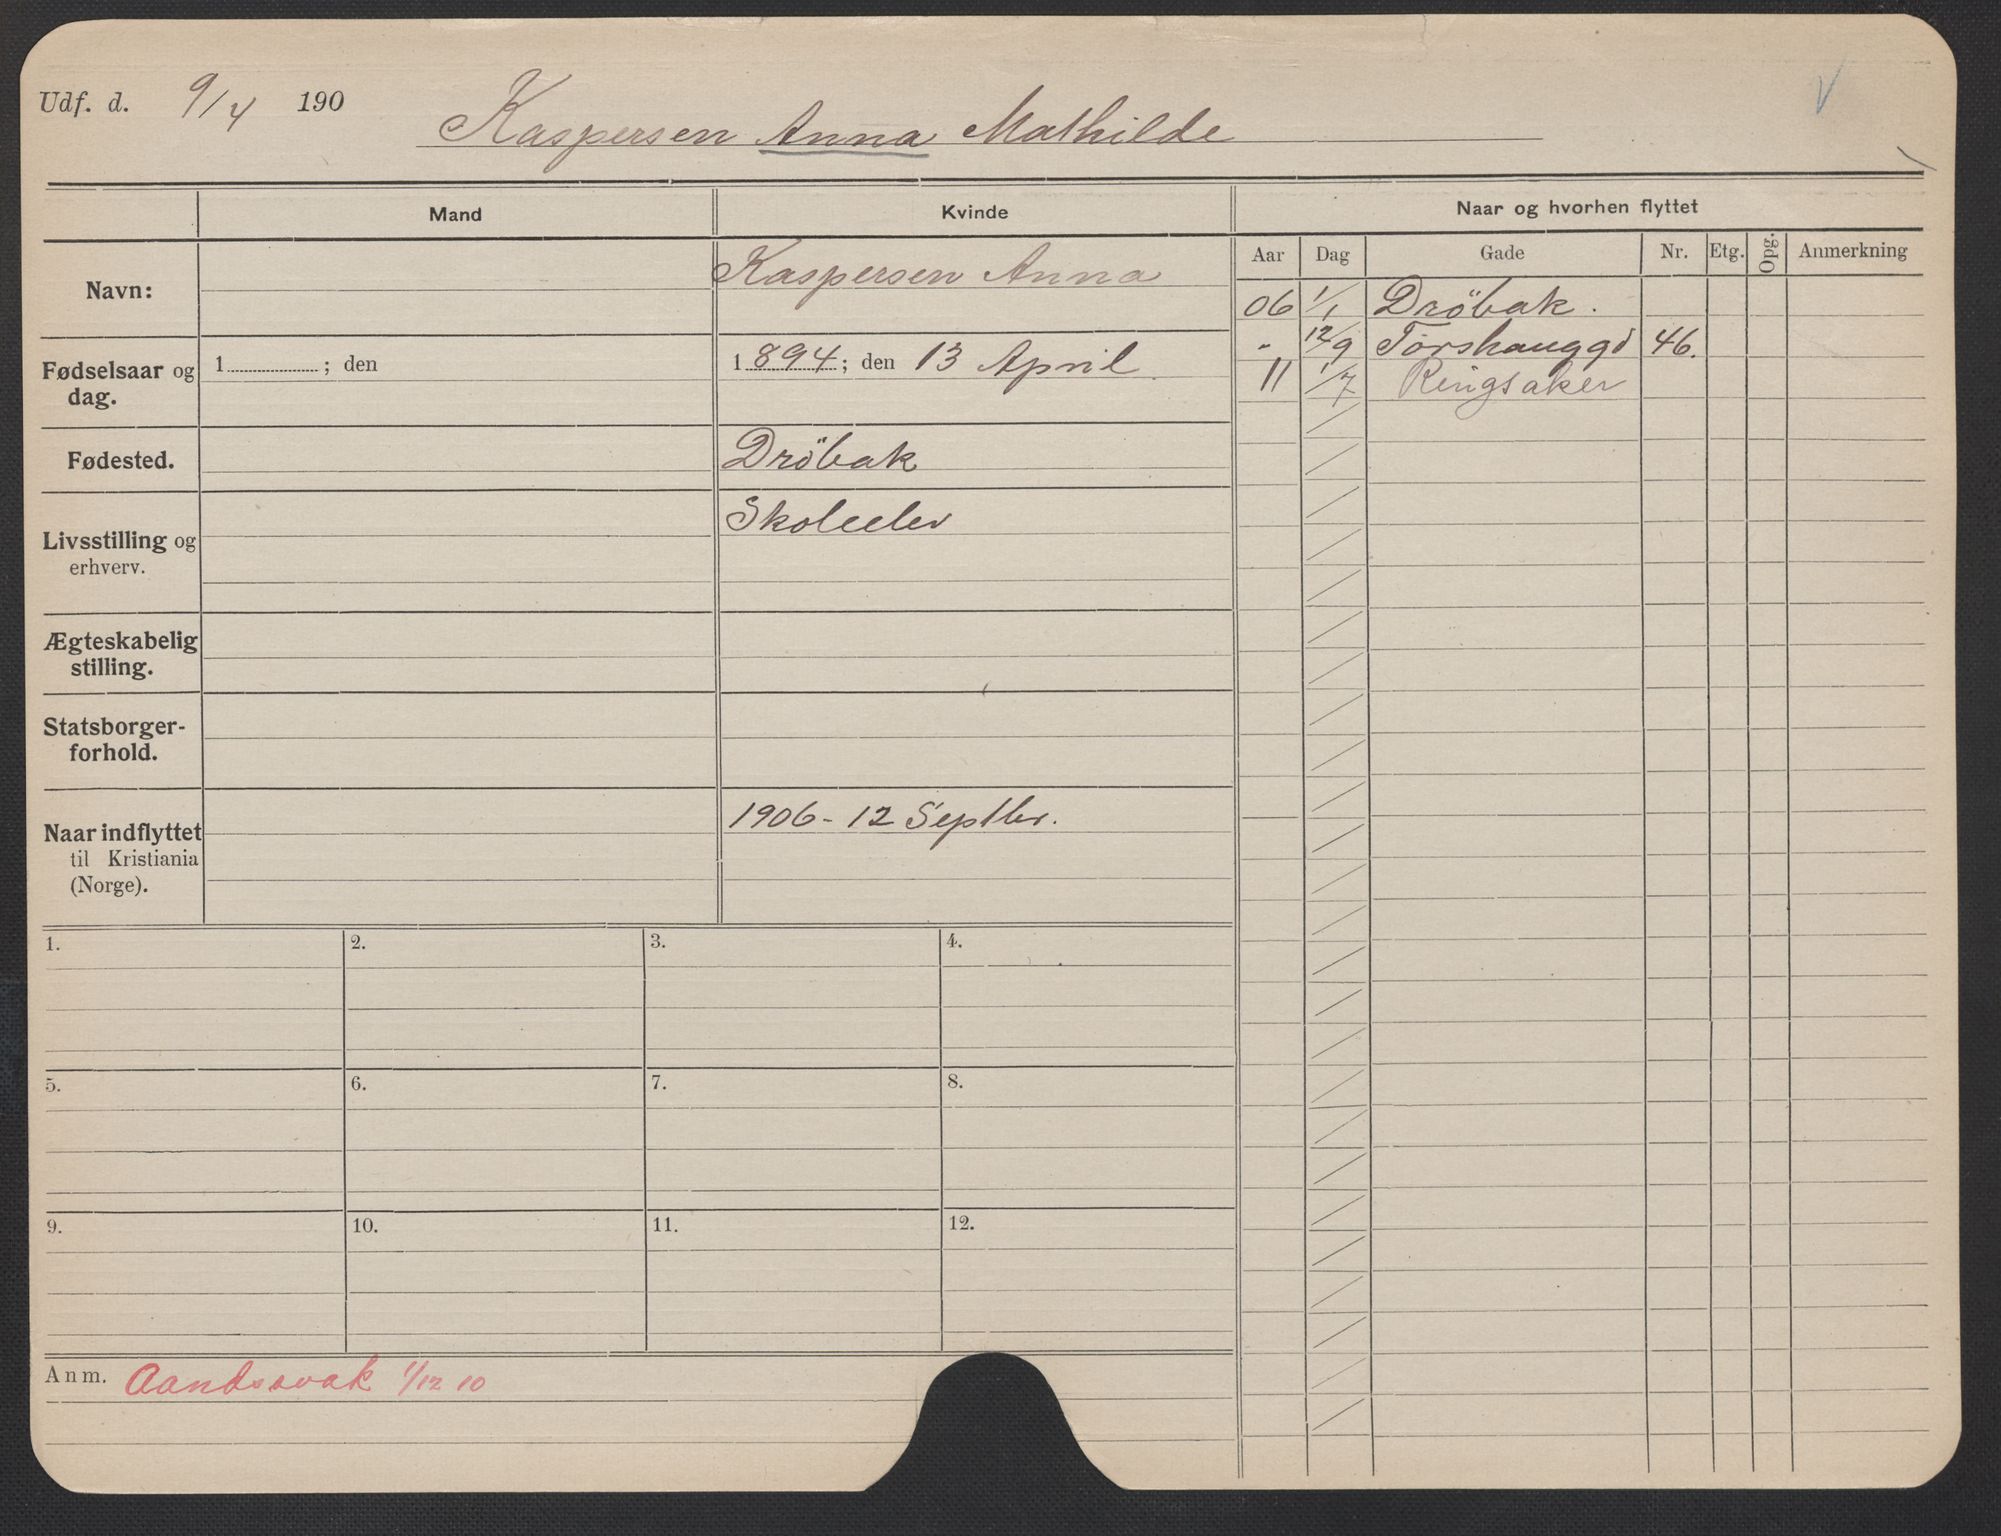 Udf. d. 9/4 190
Kaspersen Anna Mathilde
Mand
Kvinde
Naar og hvorhen flyttet
Aar Dag Gade Nr. Etg. Opg. Anmerkning
Navn:
Kaspersen Anna
06 1/1 Dröbak.
" 12/9 Torshauggd 46.
11 1/7 Ringsaker
Fødselsaar og
dag.
1 ; den
1 894 ; den 13 April
Fødested.
Dröbak
Livsstilling og
erhverv.
Skoleelev
Ægteskabelig
stilling.
Statsborger-
forhold.
Naar indflyttet
til Kristiania
(Norge).
1906 - 12 Septbr.
1. 2. 3. 4.
5. 6. 7. 8.
9. 10. 11. 12.
Anm. Aandssvak 1/12 10